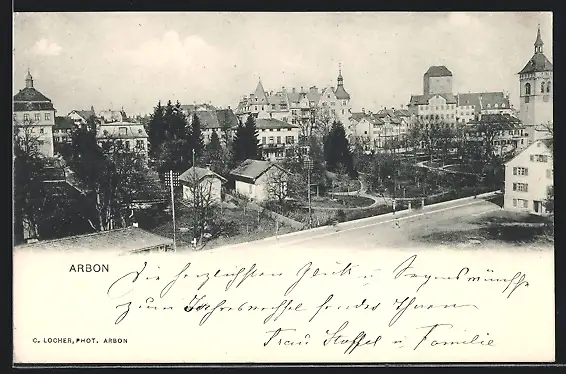 ARBON
Die herzlichsten Glück u Segenswünsche
zum Jahreswechsel sendet Ihnen
Frau Stoffel u. Familie
C. LOCHER, PHOT. ARBON